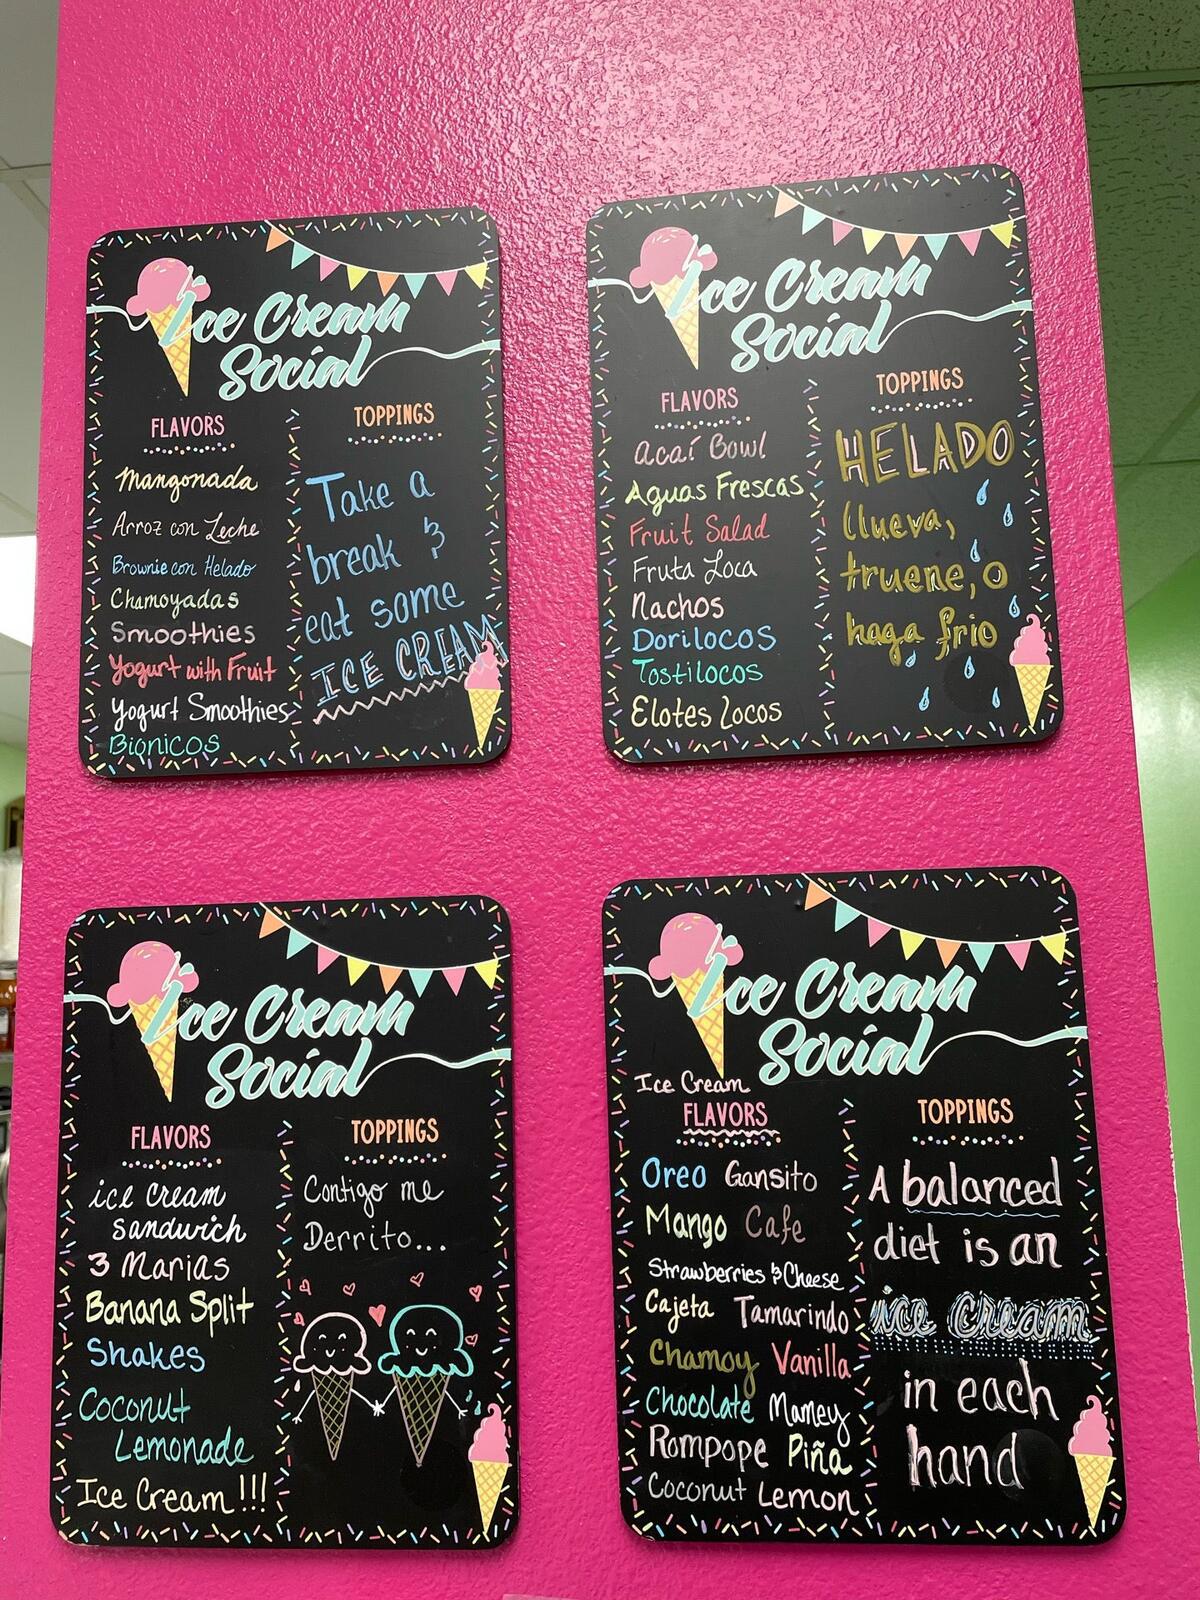 Ice Cream
Social
FLAVORS
Mangonada
Arroz con Leche
Brownie con Helado
Chamoyadas
Smoothies
Yogurt with Fruit
Yogurt Smoothies
Bionicos
TOPPINGS
Take a
break &
eat some
ICE CREAM
Ice Cream
Social
FLAVORS
Acaí Bowl
Aguas Frescas
Fruit Salad
Fruta Loca
Nachos
Dorilocos
Tostilocos
Elotes Locos
TOPPINGS
HELADO
llueva,
truene, o
haga frio
Ice Cream
Social
FLAVORS
ice cream
sandwich
3 Marias
Banana Split
Shakes
Coconut
Lemonade
Ice Cream!!!
TOPPINGS
Contigo me
Derrito...
Ice Cream
Social
Ice Cream
FLAVORS
Oreo Gansito
Mango Cafe
Strawberries & Cheese
Cajeta Tamarindo
Chamoy Vanilla
Chocolate Mamey
Rompope Piña
Coconut Lemon
TOPPINGS
A balanced
diet is an
ice cream
in each
hand